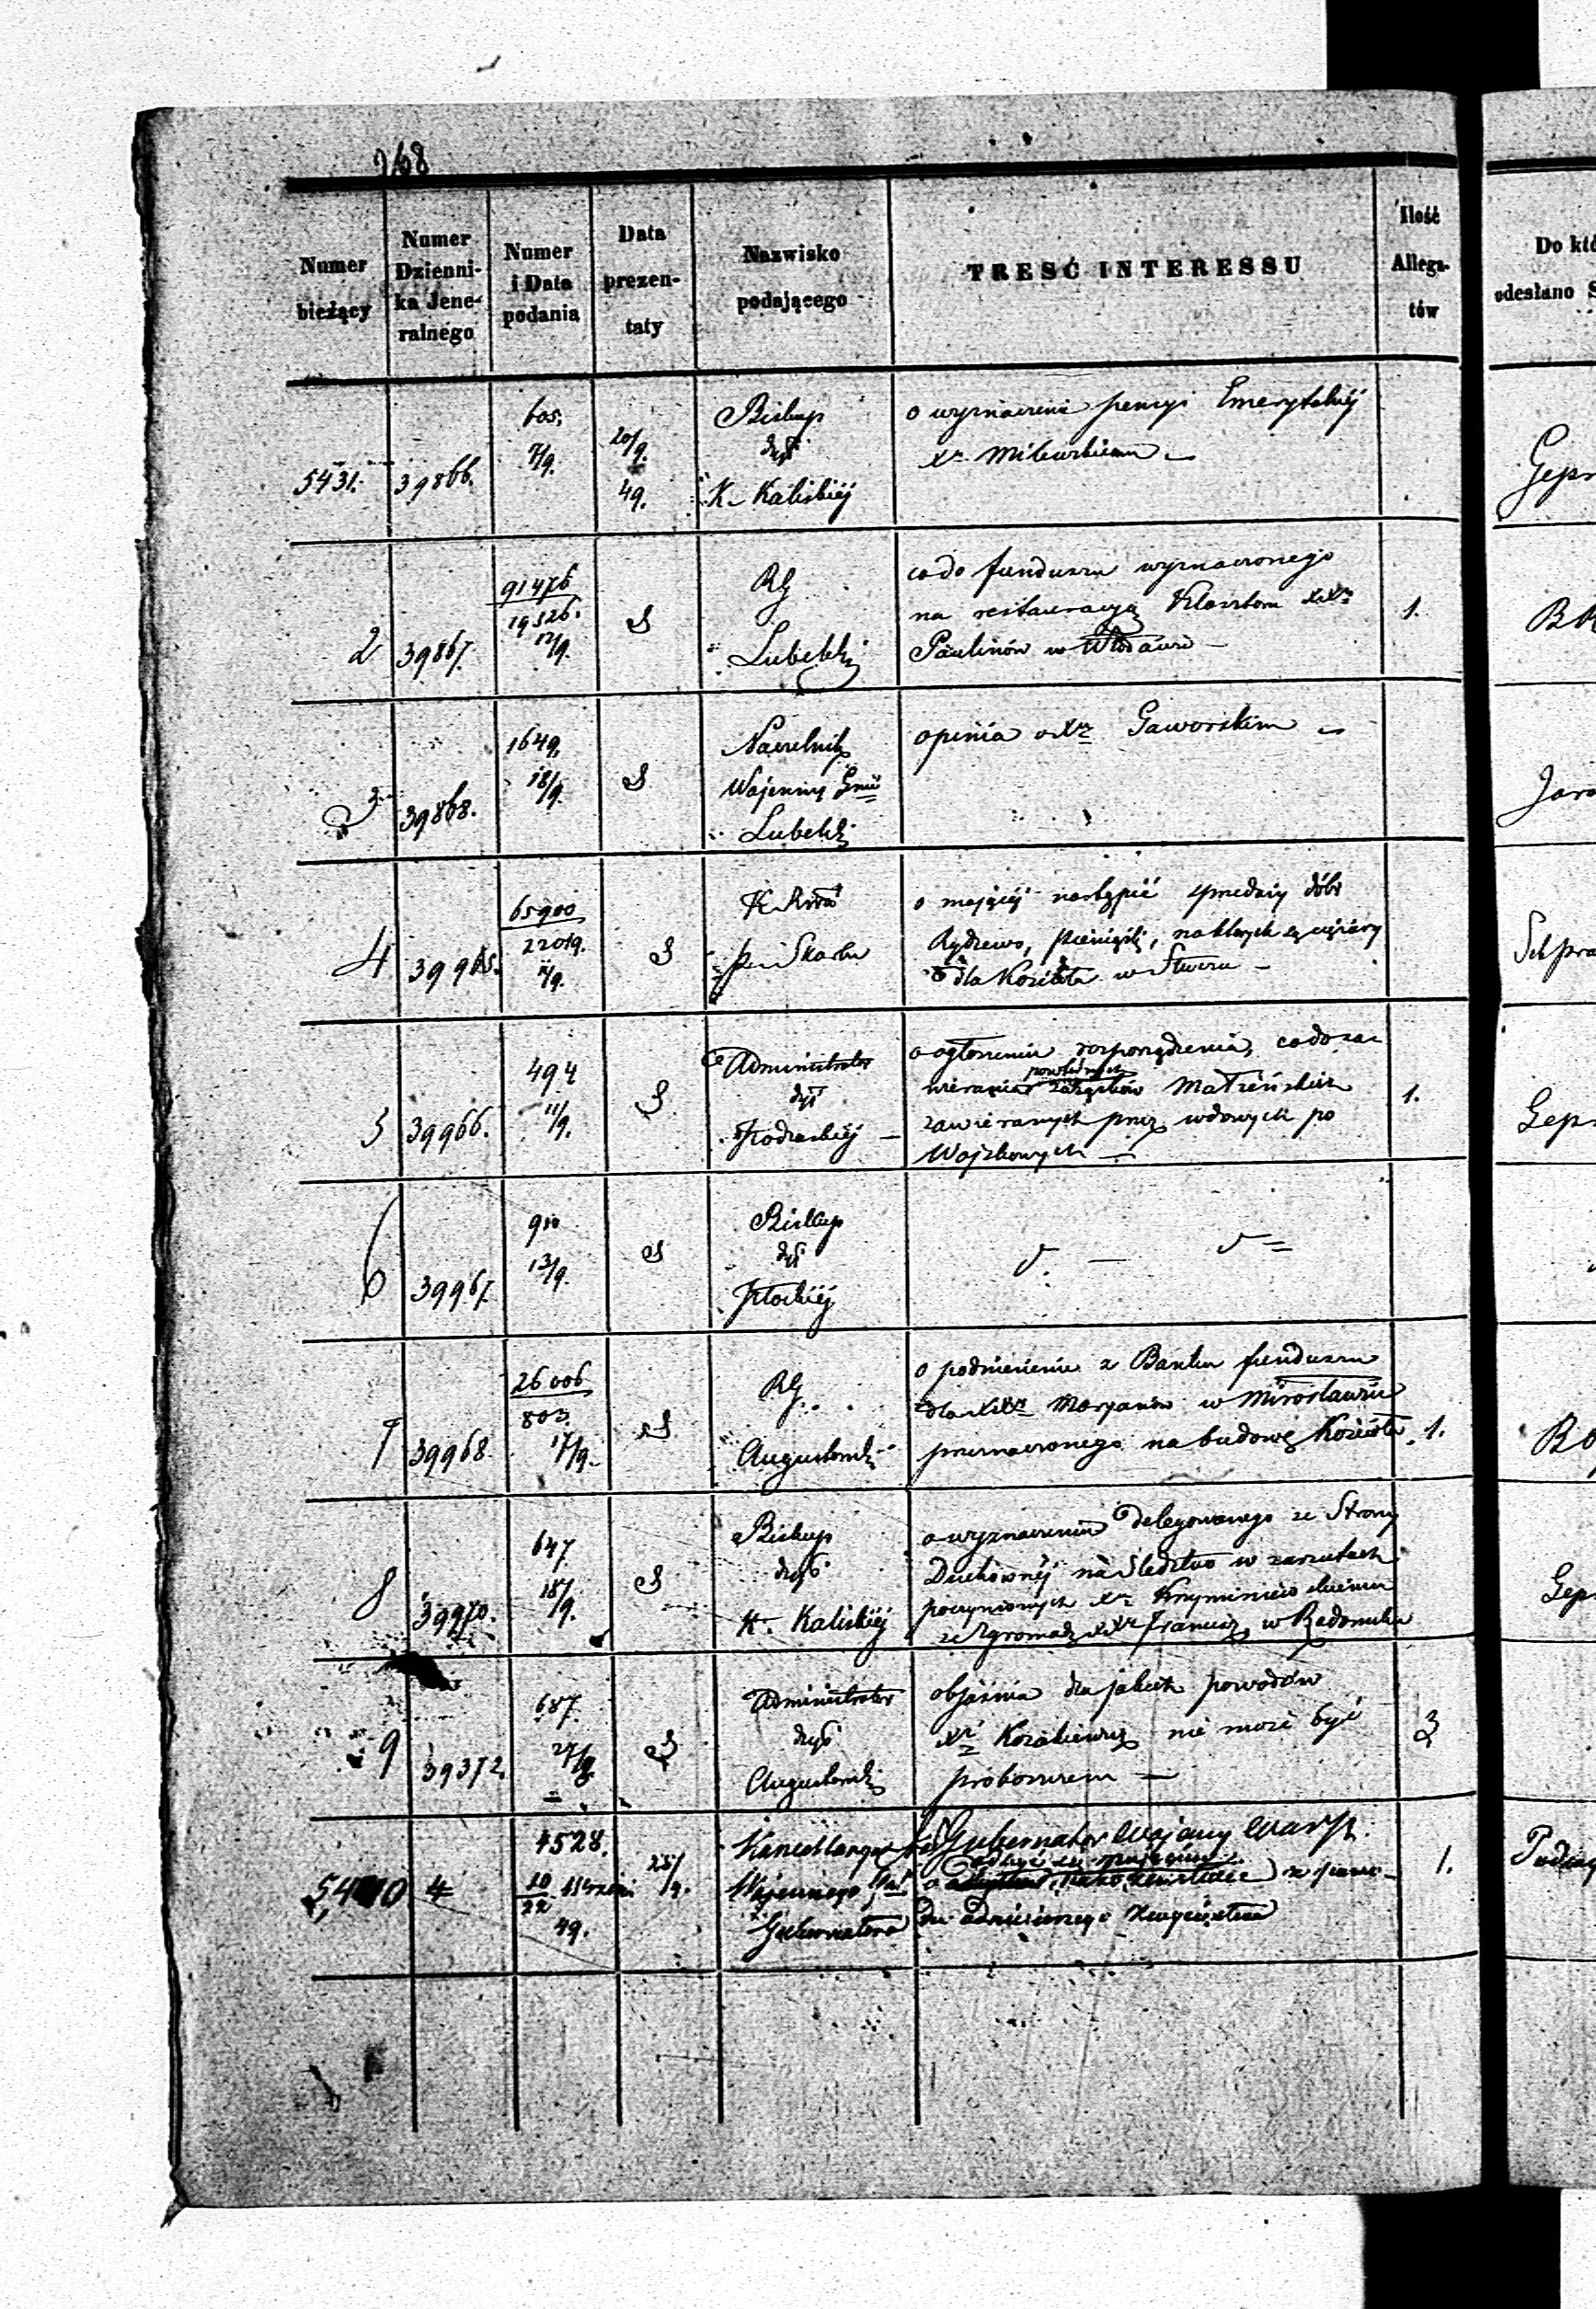 268
Numer bieżący
Numer Dzienni-ka Jene-ralnego
Numer i Data podania
Data prezen-taty
Nazwisko podającego
TRESĆ INTERESSU
Ilość Allega-tów
Do któ
odesłano S
5431.
39866.
605.
7/9.
20/9.
49.
Biskup
dyi
K. Kaliskiéj
o wyznaczenie pensyi Emerytalnéj
Xu Milewskiemu —
Gepr
2
39867.
91476
19326.
12/9.
S
RG
Lubelski
co do funduszu wyznaczonego
na restauracyą Klasztoru XX
Paulinów w Włodawie —
1.
3
39868.
1649.
18/9.
S
Naczelnik
Wojenny Gnii
Lubelskiéj
opinia o Xu Gaworskim —
Jaro
4
39965.
65900
22019.
S
K Rwa
P. i Skarbu
o mającéj nastąpić sprzedaży dóbr
Rydzewo, na których są ciężary
dla Kościoła w
5
39966.
494
11/9.
S
Administrator
dyi
Podlaskiéj —
o ogłoszeniu rozporządzenia, co do za-
wierania związków Małżeńskich
zawieranych przez wdowy po
Wojskowych —
1.
Gepr
6
39967.
910
13/9.
S
Biskup
dyi
Płockiéj
7
39968.
26006
803.
17/9.
S
RG.
Augustowski
o podniesienie z Banku funduszu
dla XX Maryanów w Mirosławiu
przeznaczonego na budowę Kościoła
1.
8
39970.
647
18/9.
S
Biskup
dyi
K. Kaliskiéj
o wyznaczenie Delegowanego ze Strony
Duchownéj na Śledztwo w zarzutach
poczynionych Xu
ze Zgromadz XX Francisz. w Radomsku
Gepr
9
39372
687.
27/9.
S
Administrator
dyi
Augustowski
objaśnia dla jakich powodów
X Kozakiewicz nie może być
proboszczem —
3
5440
4528.
10/22 Wrześni
49.
25/9.
Kancellarya
Wojennego
Gubernatora
Gubernator Wojenny Warsz.
1.